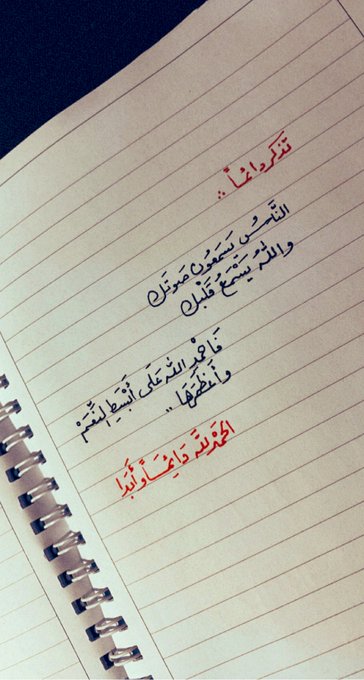 تذكر دائماً :
النَّاسُ يَسمَعُون صَوتَك
واللهُ يَسْمَعُ قَلْبك
فَاحمْدِ الله عَلى أَبْسَطِ النِّعَمْ
وأعْظَمَها ..
الحَمْدُ للهِ دَائِمَاً وأَبَدَا